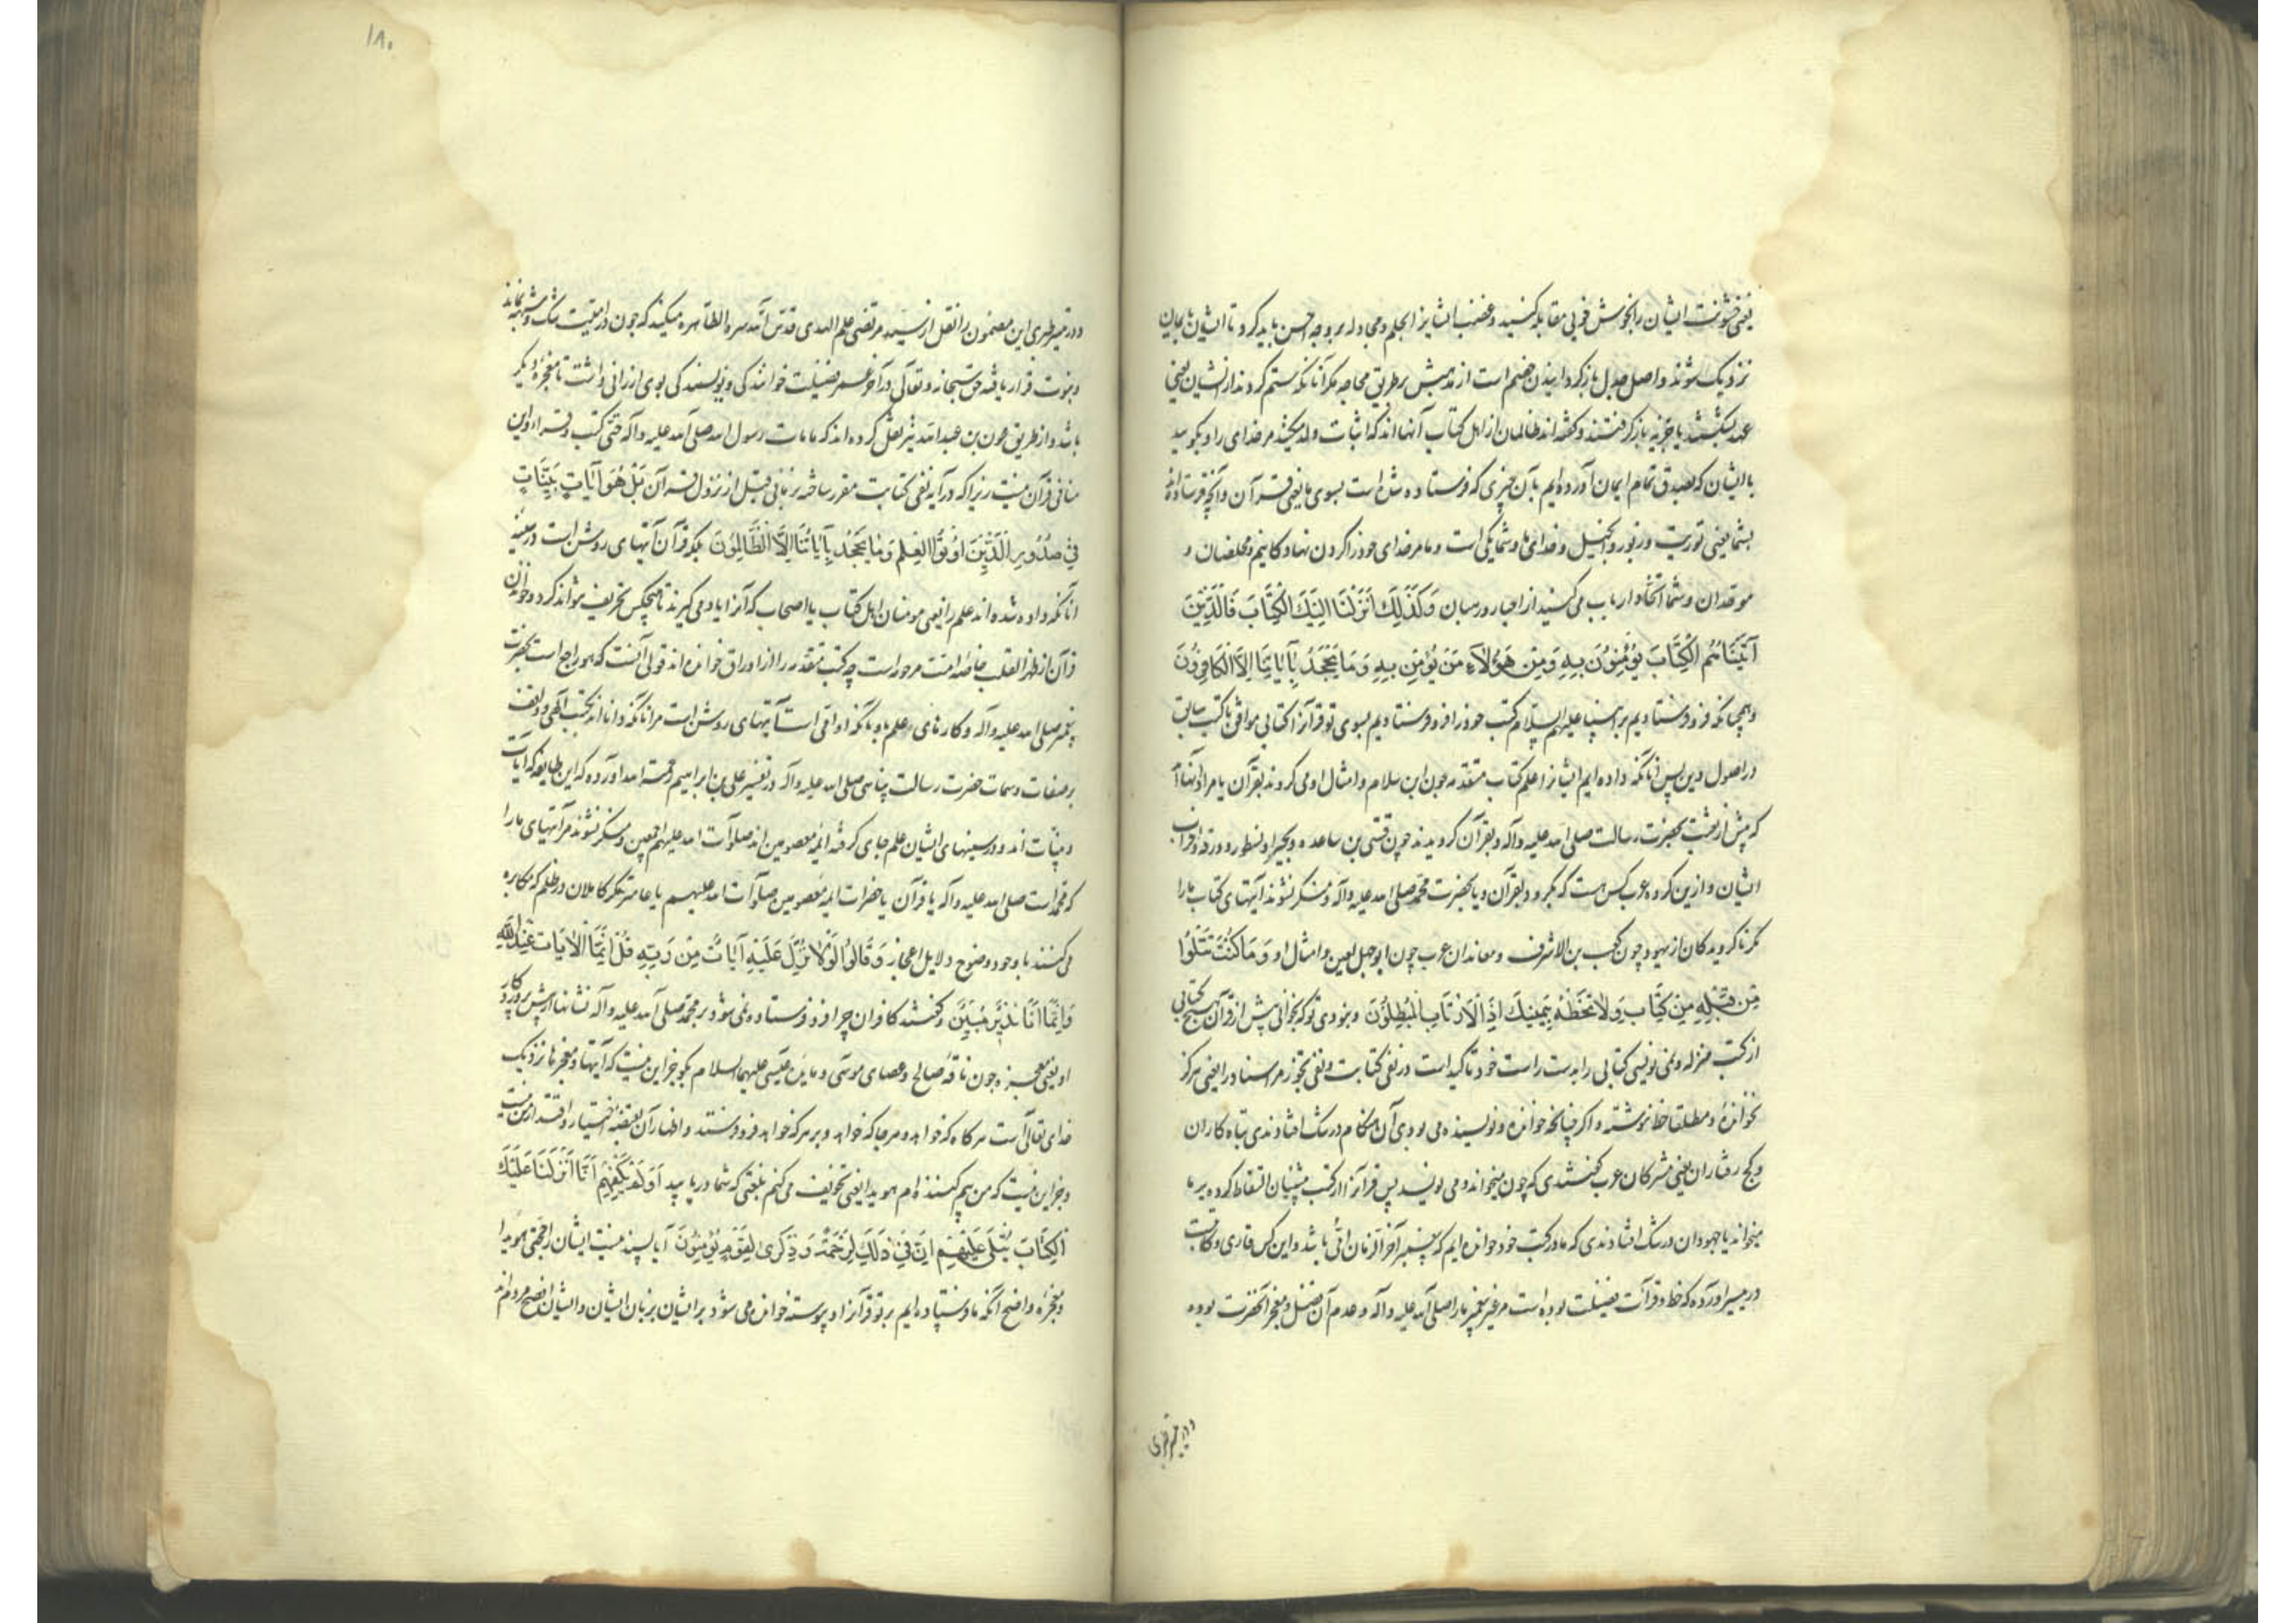 یعنی خشونت ایشان را بخوش خوئی مقابله کنید و غضب ایشانرا بحلم و مجادله بر وجه احسن باید کرد تا ایشان بایمان
نزدیک شوند و اصل جدل بازگردانیدن خصم است از مذهبش بر طریق محاجه مگر آنانکه ستم کردند از ایشان یعنی
عهد بشکنند یا جزیه باز گرفتند و گفته‌اند ظالمان از اهل کتاب آنها اند که اثبات ولد میکنند مر خدای را و بگوئید
با ایشان که بصدق تمام ایمان آورده‌ایم بآن چیزی که فرستاده شده است بسوی ما یعنی قرآن و آنچه فرستاده‌اند
بشما یعنی توریت و زبور و انجیل و خدای ما و شما یکی است و ما مر خدای خود را گردن نهادگانیم و مخلصان و
موحدان و شما اتخاذ ارباب می کنید از احبار و رهبان وَكَذَلِكَ أَنْزَلْنَا إِلَيْكَ الْكِتَابَ فَالَّذِينَ
آتَيْنَاهُمُ الْكِتَابَ يُؤْمِنُونَ بِهِ وَمِنْ هَؤُلَاءِ مَنْ يُؤْمِنُ بِهِ وَمَا يَجْحَدُ بِآيَاتِنَا إِلَّا الْكَافِرُونَ
و همچنانکه فرو فرستادیم بر انبیا علیهم السلام کتب خود را فرو فرستادیم بسوی تو قرآنرا کتابی موافق با کتب سابق
در اصول دین پس آنانکه داده ایم ایشانرا علم کتاب متقدمه چون ابن سلام و امثال او می گروند بقرآن یا مراد آنها
که پیش از بعثت بحضرت رسالت صلی الله علیه و آله و بقرآن گرویدند چون قس بن ساعده و بحیرا و نسطور و ورقه و اضراب
ایشان و ازین گروه عرب کس هست که بگرود بقرآن و یا بحضرت محمد صلی الله علیه و آله و منکر نشوند آیتهای کتاب مارا
مگر ناگرویدگان از یهود چون کعب بن الاشرف و معاندان عرب چون ابو جهل لعین و امثال او وَمَا كُنْتَ تَتْلُوا
مِنْ قَبْلِهِ مِنْ كِتَابٍ وَلَا تَخُطُّهُ بِيَمِينِكَ إِذًا لَارْتَابَ الْمُبْطِلُونَ و نبودی تو که بخوانی پیش از قرآن هیچ کتابی
از کتب منزله و نمی نویسی کتابی را بدست راست خود تاکید است در نفی کتابت و نفی تجوز مر اسناد را یعنی هرگز
نخوانده و مطلقا خط ننوشته و اگر چنانچه خواننده و نویسنده می بودی آن هنگام در شک افتادندی تباه کاران
و کج رفتاران یعنی مشرکان عرب گفتندی که چون میخواند و می نویسد پس قرآنرا از کتب پیشینیان التقاط کرده بر ما
میخواند یا جهودان در شک افتادندی که ما در کتب خود خوانده ایم که پیغمبر آخر الزمان امّی باشد و این کس قاری و کاتب
در تیسیر آورده که خط و قرآئت فضیلت بوده است مر غیر پیغمبر ما را صلی الله علیه و آله و عدم آن فضل و معجز آنحضرت بوده
۱۸۰
و در تفسیر طبری این مضمون را نقل از سید مرتضی علم الهدی قدس الله سره الطاهره میکند که چون در امّیت شک و شبهه نماند
و نبوت قرار یافت حق سبحانه و تعالی در آخر عمر فضیلت خوانندگی و نویسندگی بوی ارزانی داشت تا معجزه دیگر
باشد و از طریق عون بن عبد الله نیز نقل کرده اند که ما مات رسول الله صلی الله علیه و آله حتی کتب و قرا و این
منافی قرآن نیست زیرا که در آیه نفی کتابت مقرر ساخته بزمانی قبل از نزول قرآن بَلْ هُوَ آيَاتٌ بَيِّنَاتٌ
فِي صُدُورِ الَّذِينَ أُوتُوا الْعِلْمَ وَمَا يَجْحَدُ بِآيَاتِنَا إِلَّا الظَّالِمُونَ بلکه قرآن آیتهای روشن است در سینه
آنانکه داده شده اند علم را یعنی مومنان اهل کتاب یا اصحاب که آنرا یاد می گیرند تا هیچکس تحریف نتواند کرد و خواندن
قرآن از ظهر القلب خاصه امت مرحومه است چه کتب متقدمه را از اوراق خوانده اند قولی آنست که هو راجع است بحضرت
پیغمبر صلی الله علیه و آله و کارهای و علم باو بآنکه او امّی است آیتهای روشن است مر آنانکه دانا اند بکتب الهی و واقف
بر صفات و سمات حضرت رسالت پناهی صلی الله علیه و آله در تفسیر علی بن ابراهیم رحمه الله آورده که این طایفه که آیات
و بینات اند و در سینهای ایشان علم جای گرفته ائمه معصومین اند صلوات الله علیهم اجمعین و منکر نشوند مر آیتهای ما را
که محمد است صلی الله علیه و آله یا قرآن یا حضرات ائمه معصومین صلوات الله علیهم یا عامتر مگر کاملان در ظلم که مکابره
می کنند با وجود وضوح دلایل اعجاز وَقَالُوا لَوْلَا نُزِّلَ عَلَيْهِ آيَاتٌ مِنْ رَبِّهِ قُلْ إِنَّمَا الْآيَاتُ عِنْدَ اللَّهِ
وَإِنَّمَا أَنَا نَذِيرٌ مُبِينٌ و گفتند کافران چرا فرو فرستاده نمی شود بر محمد صلی الله علیه و آله نشانها از پیش پروردگار
او یعنی معجزه چون ناقه صالح و عصای موسی و مایده عیسی علیهما السلام بگو جز این نیست که آیتها و معجزها نزدیک
خدای تعالی است هر گاه که خواهد و هر جا که خواهد و بر هر که خواهد فرو فرستد و اظهار آن بقبضه اختیار و اقتدار من نیست
و جز این نیست که من بیم کننده ام هویدا یعنی تخویف می کنم بلغتی که شما دریابید أَوَلَمْ يَكْفِهِمْ أَنَّا أَنْزَلْنَا عَلَيْكَ
الْكِتَابَ يُتْلَى عَلَيْهِمْ إِنَّ فِي ذَلِكَ لَرَحْمَةً وَذِكْرَى لِقَوْمٍ يُؤْمِنُونَ آیا بسنده نیست ایشانرا حجتی هویدا
و معجزه واضح آنکه ما فرستاده ایم بر تو قرآنرا و پیوسته خوانده می شود بر ایشان بزبان ایشان و ایشان افصح مردم اند